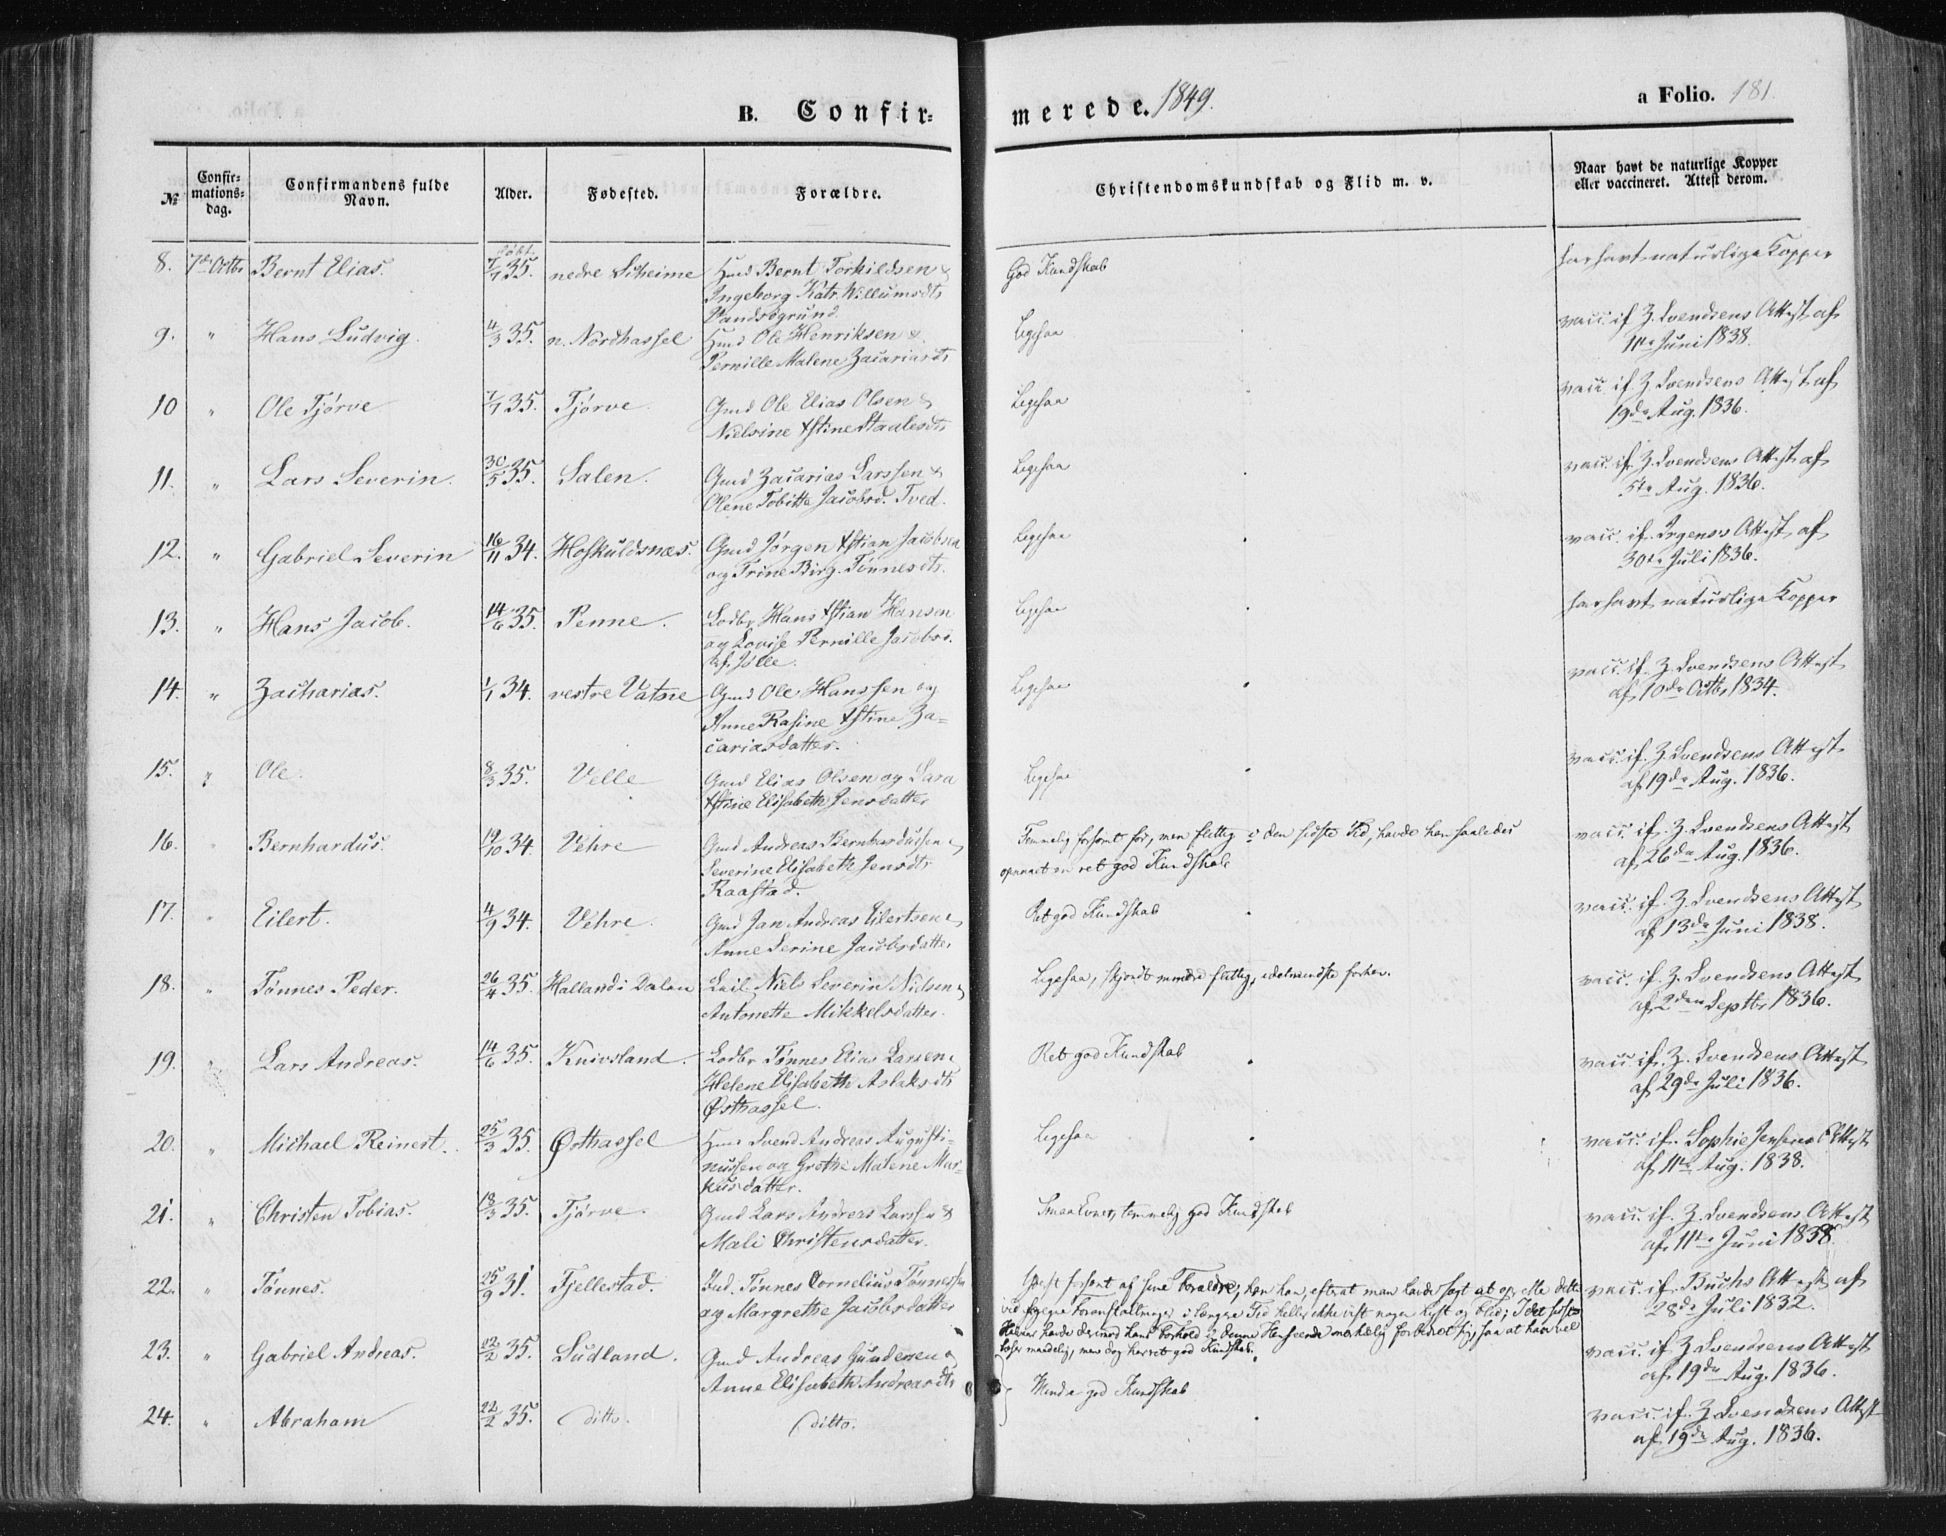 B. Confir-
merede. 1849.
a Folio. 181.
№
Confir-
mations-
dag.
Confirmandens fulde
Navn.
Alder.
Fødested.
Forældre.
Christendomskundskab og Flid m. v.
Naar havt de naturlige Kopper
eller vaccineret. Attest derom.
8. 7de Octbr Bernt Elias. 7/7 35. nedre Scheime Huusm. Bernt Torkildsen &
Ingeborg Katr. Willumsdtr
Vandsøgrund.
God Kundskab
har havt naturlige Kopper
9. " Hans Ludvig. 4/3 35. n. Nordhassel Huusm. Ole Henriksen &
Pernille Malene Zacariasdtr
Ligesaa
vacc. if. Z. Svendsens Attest af
11te Juni 1838.
10 " Ole Tjørve 7/7 35. Tjørve. Gmd Ole Elias Olsen &
Nielsine Xstine Staalesdtr
Ligesaa
vacc. if. Z. Svendsens Attest af
19de Aug. 1836.
11. " Lars Severin. 30/5 35. Salen. Gmd Zacarias Larssen &
Olene Tobitte Jacobsd. Tved.
Ligesaa
vacc. if. Z. Svendsens Attest af
5te Aug. 1836.
12. " Gabriel Severin 16/11 34. Hoskuldsnæs. Gmd Jørgen Xstian Jacobsen
og Trine Birg. Tønnesdtr.
Ligesaa
vacc. if. Irgens's Attest af
30te Juli 1836.
13. " Hans Jacob. 14/6 35. Penne. Lodbr Hans Xstian Hansen
og Lovise Pernille Jacobsd.
Jølle.
Ligesaa
har havt naturlige Kopper
14. " Zacharias. 1/1 34. vestre Vatne Gmd Ole Hanssen og
Anne Rasine Xstine Za-
cariasdatter.
Ligesaa
vacc. if. Z. Svendsens Attest
af 10de Octbr 1834.
15. " Ole. 8/3 35. Velle Gmd Elias Olsen og Sara
Xstine Elisabeth Jensdatter
Ligesaa
vacc. if. Z. Svendsens Attest
af 19de Aug. 1836.
16. " Bernhardus. 19/10 34. Vehre Gmd Andreas Bernhardusen &
Severine Elisabeth Jensdtr
Raastad.
Temmelig forsømt før, men flittig i den sidste Tid, havde han saaledes
opnaaet en ret god Kundskab
vacc. if. Z. Svendsens Attest
af 26de Aug. 1836.
17. " Eilert. 4/9 34. Vehre. Gmd Jan Andreas Eilertsen &
Anne Serine Jacobsdatter
Ret god Kundskab
vacc. if. Z. Svendsens Attest
af 13de Juni 1838.
18. " Tønnes Peder. 26/4 35. Halland i Dalen Leil. Niels Severin Nielsen &
Antonette Mikkelsdatter.
Ligesaa, skjøndt mindre flittig, idetmindste forhen.
vacc. if. Z. Svendsens Attest
af 2den Septbr 1836.
19. " Lars Andreas. 14/6 35. Knivsland. Lodbr Tønnes Elias Larsen &
Helene Elisabeth Aslaksdtr
Østhassel.
Ret god Kundskab
vacc. if. Z. Svendsens Attest
af 29de Juli 1836.
20. " Michael Reinert. 25/3 35. Østhassel Huusm. Svend Andreas Augusti-
nussen og Grethe Malene Mar-
kusdatter.
Ligesaa
vacc. if. Sophie Jensens Attest
af 11te Aug. 1838.
21. " Christen Tobias. 18/3 35. Tjørve. Gmd Lars Andreas Larssen &
Mali Christensdatter.
Smaa Evner, temmelig god Kundskab
vacc. if. Z. Svendsens Attest
af 11te Juni 1838.
22. " Tønnes. 25/9 31. Fjellestad. Ind. Tønnes Cornelius Tønnessen
og Margrethe Jacobsdatter
forsømt af sine Forældre, har han, efterat man havde søgt at oprette dette
ved egne Foranstaltninger i længere Tid heller ikke vist nogen Lyst og Flid; I det sidste
Halvaar havde derimod hans Forhold i denne Henseende mærkelig forbedret sig, saa at han vel
læser maadelig, men dog har ret god Kundskab.
vacc. if. Buchs Attest af
28de Juli 1832.
23. " Gabriel Andreas. 22/2 35. Sudland. Gmd Andreas Gundersen &
Anne Elisabeth Andreasdtr
Mindre god Kundskab
vacc. if. Z. Svendsens Attest
af 19de Aug. 1836.
24. " Abraham 22/2 35. ditto. ditto.
vacc. if. Z. Svendsens Attest
af 19de Aug. 1836.